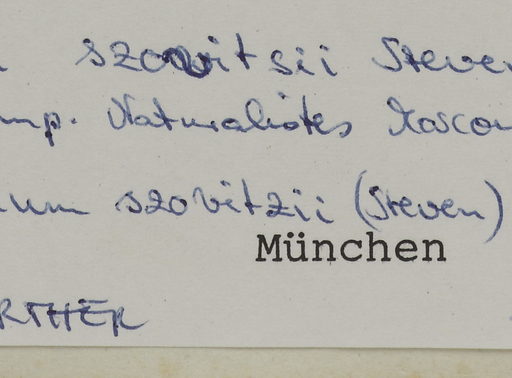 szovitsii Steven
mp. Naturalistes Moscou
um szovitzii (Steven)
München
RTHER